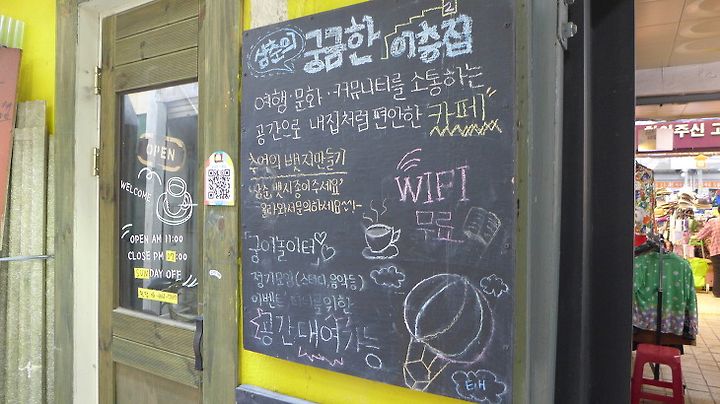 삼순의 궁금한 이층집
2
여행·문화·커뮤니티를 소통하는
공간으로 내집처럼 편안한 카페
추억의 뱃지만들기
올라와서문의하세요
WIFI
무료
궁이놀이터
정기모임(스터디,음악등)
이벤트 파티를위한
공간대여가능
E.H
OPEN
WELCOME
OPEN AM 11:00
CLOSE PM :00
SUNDAY OFF